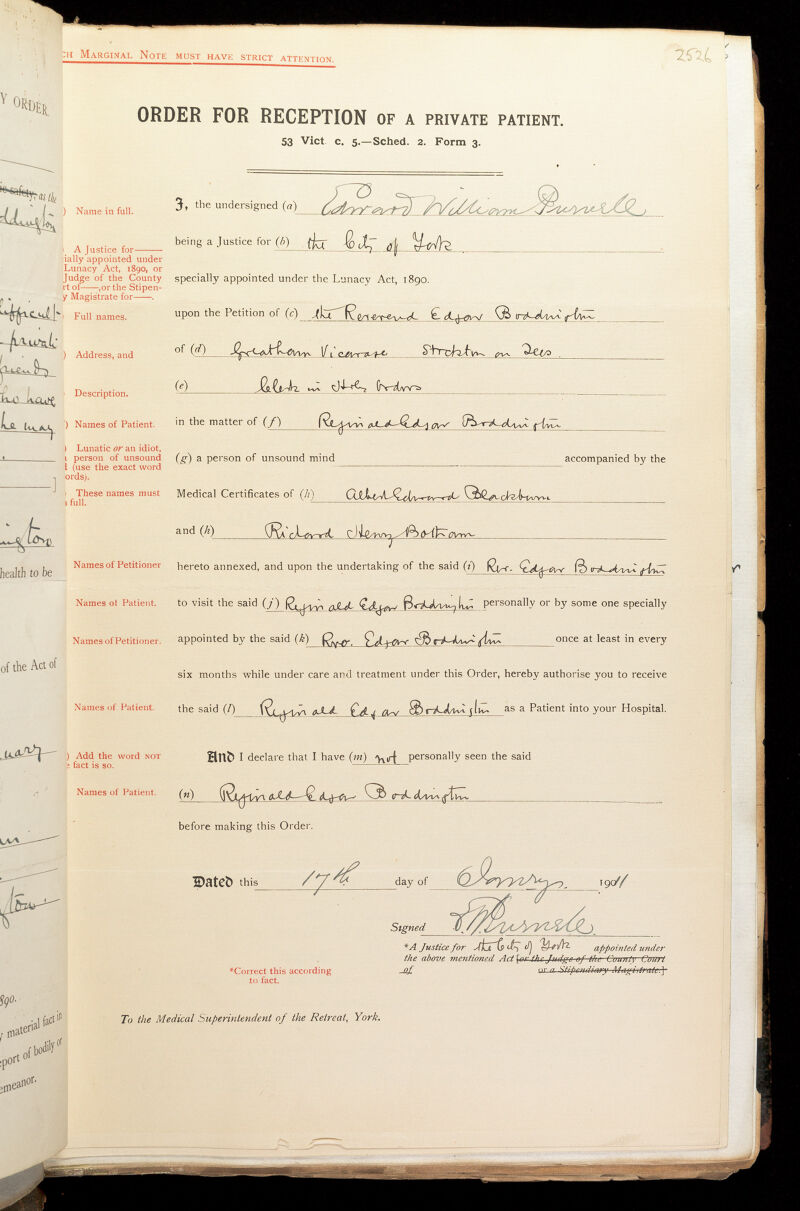 CH MARGINAL NOTE MUST HAVE STRICT ATTENTION.
2526
ORDER FOR RECEPTION OF A PRIVATE PATIENT.
53 Vict c. 5.—Sched. 2. Form 3.
Y ORDER.
as the
) Name in full.
I, the undersigned (a) Edward William Purnell
A Justice for——
ially appointed under
Lunacy Act, 1890, or
Judge of the County
rt of——,or the Stipen-
y Magistrate for——.
being a Justice for (b) the City of York
specially appointed under the Lunacy Act, 1890.
Full names.
upon the Petition of (c) the Reverend Edgar Boddington
) Address, and
of (d) Greatham Vicarage Stockton on Tees
Description.
(e) Clerk in Holy Orders
) Names of Patient.
in the matter of (f) Reginald Edgar Boddington
) Lunatic or an idiot,
a person of unsound
d (use the exact word
ords).
(g) a person of unsound mind accompanied by the
These names must
n full.
Medical Certificates of (h) Albert Edward Blackburn
and (h) Richard Henry Botham
Names of Petitioner
hereto annexed, and upon the undertaking of the said (i) Rev. Edgar Boddington
health to be
Names of Patient.
to visit the said (j) Reginald Edgar Boddington personally or by some one specially
Names of Petitioner.
appointed by the said (k) Rev. Edgar Boddington once at least in every
of the Act of
six months while under care and treatment under this Order, hereby authorise you to receive
Names of Patient.
the said (l) Reginald Edgar Boddington as a Patient into your Hospital.
) Add the word NOT
e fact is so.
And I declare that I have (m) not personally seen the said
Names of Patient.
(n) Reginald Edgar Boddington
before making this Order.
Dated this 17th day of January 1911
Signed E. W. Purnell
*A Justice for the City of York appointed under
the above mentioned Act [or the Judge of the County Court
of or a Stipendiary Magistrate.]
*Correct this according
to fact.
890.
y material fact in
port of bodily or
emeanor.
To the Medical Superintendent of the Retreat, York.